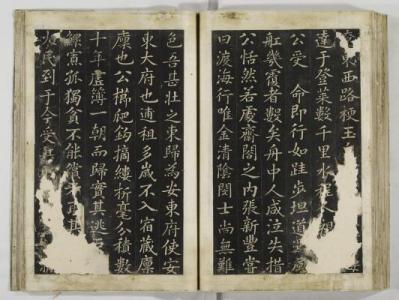 東西路梗王
達于登萊數千里水程人
公受 命即行如跬步坦道 風
舡幾覆者數矣舟中人咸泣失措
公恬然若處齋閤之內張新豊嘗
曰渡海行唯金清陰閔士尚無難
色吾甚壯之東歸為安東府使安
東大府也逋租多歲不入宿藏廪
廪也公櫛爬鈎摘縷析毫分積數
十年虛簿一朝而歸實其逃
鰥寡孤獨貧不能償 其
民到于今受